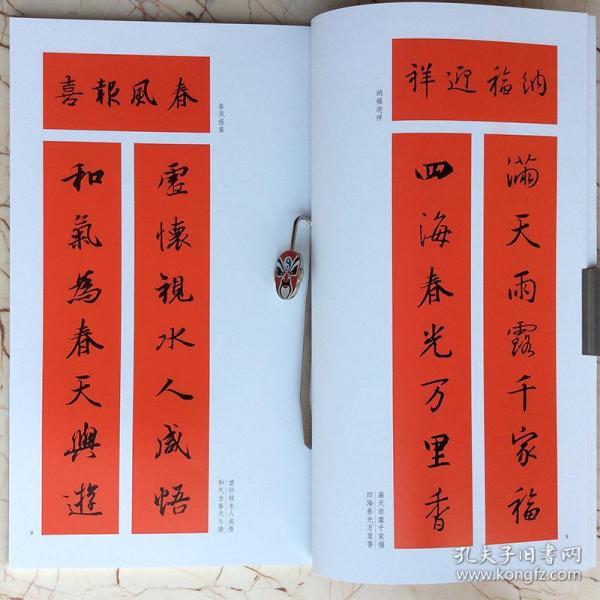 納福迎祥
纳福迎祥
滿天雨露千家福
四海春光万里香
满天雨露千家福
四海春光万里香
春風報喜
春风报喜
虛懷視水人咸悟
和氣為春天與遊
虚怀视水人咸悟
和气为春天与游
9
孔夫子旧书网
www.kongfz.com